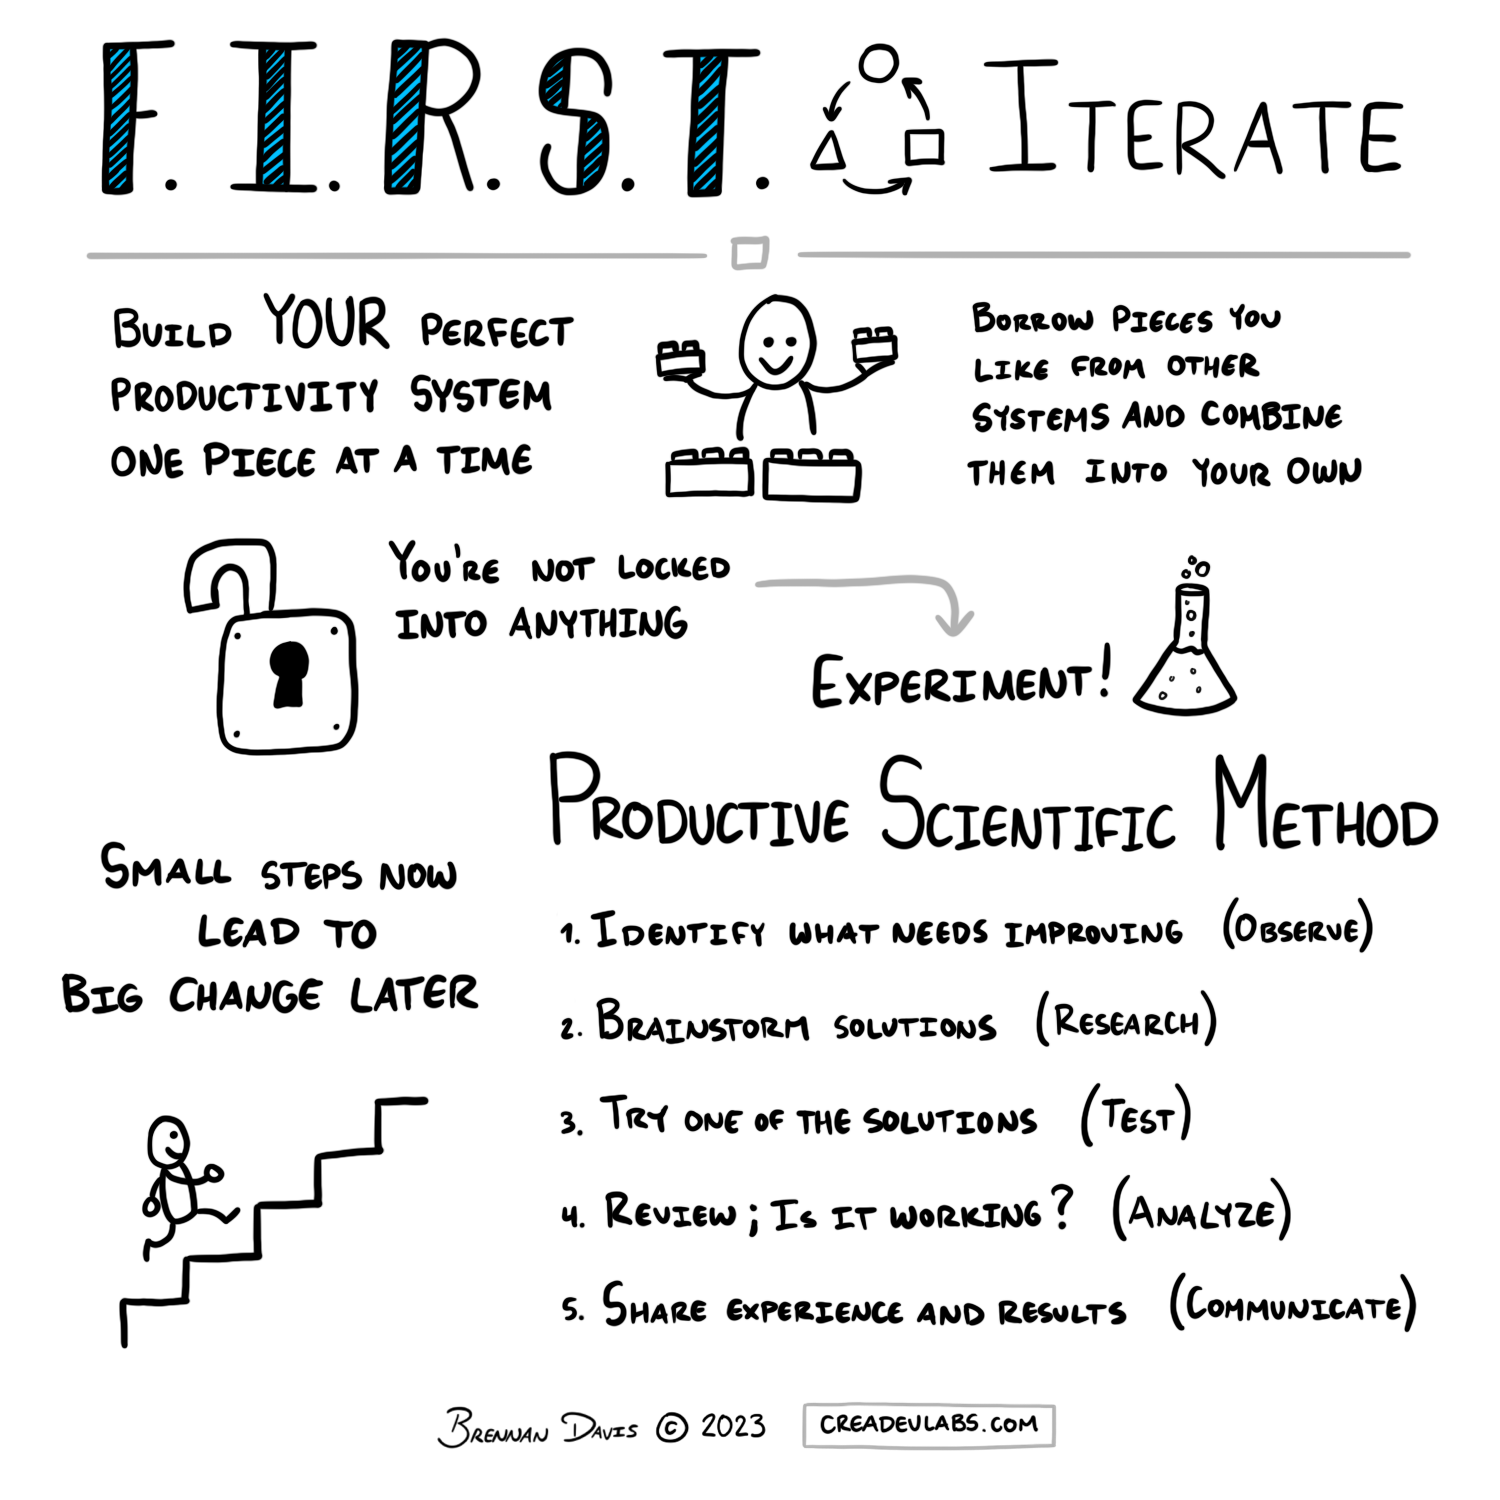 F.I.R.S.T. ITERATE
BUILD YOUR PERFECT
PRODUCTIVITY SYSTEM
ONE PIECE AT A TIME
BORROW PIECES YOU
LIKE FROM OTHER
SYSTEMS AND COMBINE
THEM INTO YOUR OWN
YOU'RE NOT LOCKED
INTO ANYTHING
EXPERIMENT!
SMALL STEPS NOW
LEAD TO
BIG CHANGE LATER
PRODUCTIVE SCIENTIFIC METHOD
1. IDENTIFY WHAT NEEDS IMPROVING (OBSERVE)
2. BRAINSTORM SOLUTIONS (RESEARCH)
3. TRY ONE OF THE SOLUTIONS (TEST)
4. REVIEW; IS IT WORKING? (ANALYZE)
5. SHARE EXPERIENCE AND RESULTS (COMMUNICATE)
BRENNAN DAVIS © 2023 CREADEVLABS.COM